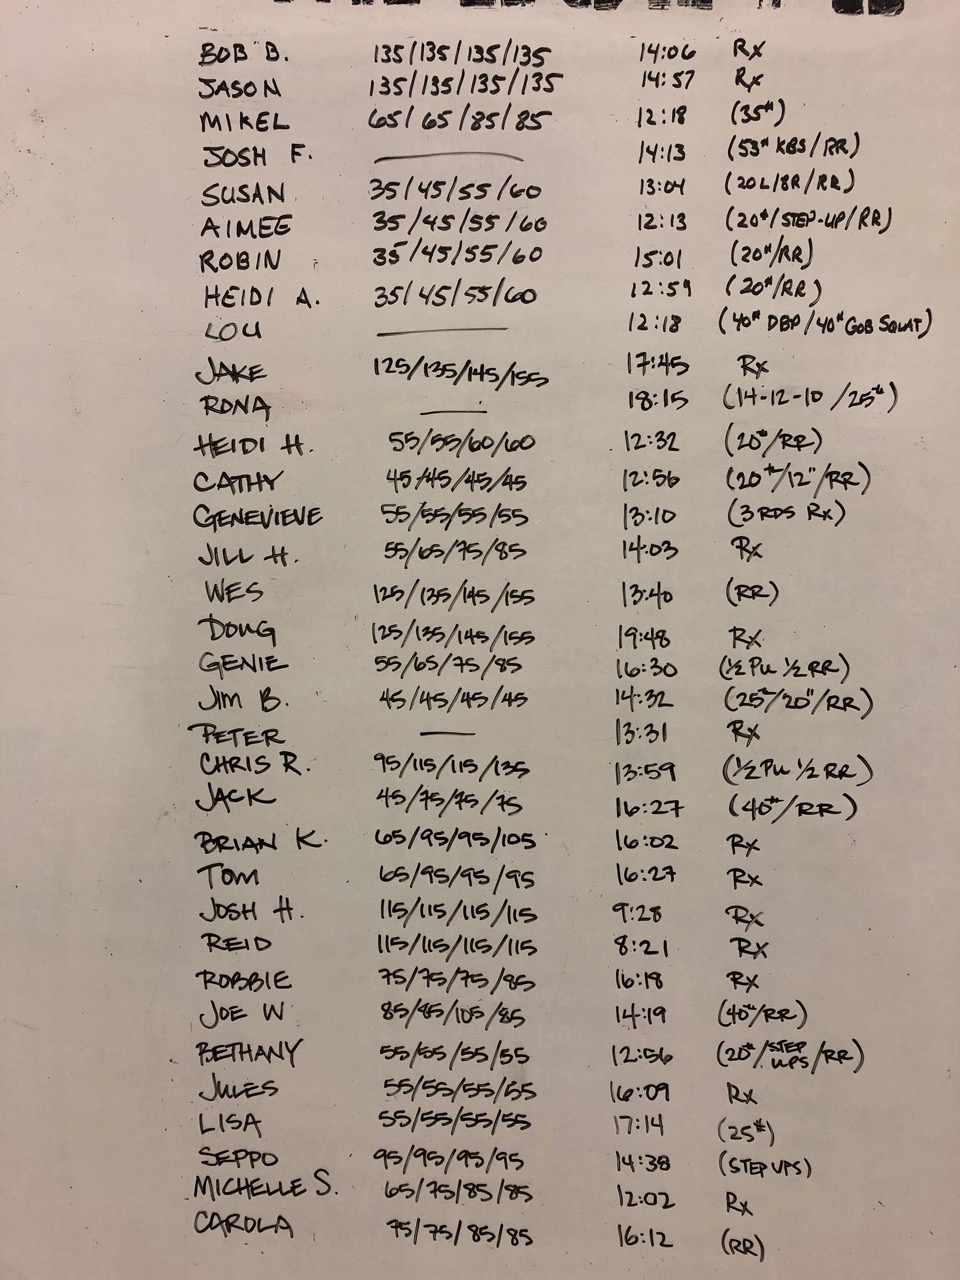 BOB B. 135/135/135/135 14:06 Rx
JASON 135/135/135/135 14:57 Rx
MIKEL 65/65/85/85 12:18 (35#)
JOSH F. — 14:13 (53# KBS/RR)
SUSAN 35/45/55/60 13:04 (20L/8R/RR)
AIMEE 35/45/55/60 12:13 (20#/STEP-UP/RR)
ROBIN 35/45/55/60 15:01 (20#/RR)
HEIDI A. 35/45/55/60 12:59 (20#/RR)
LOU — 12:18 (40# DBP/40# GOB SQUAT)
JAKE 125/135/145/155 17:45 Rx
RONA — 18:15 (14-12-10/25#)
HEIDI H. 55/55/60/60 12:32 (20#/RR)
CATHY 45/45/45/45 12:56 (20#/12"/RR)
GENEVIEVE 55/55/55/55 13:10 (3 RDS Rx)
JILL H. 55/65/75/85 14:03 Rx
WES 125/135/145/155 13:40 (RR)
DOUG 125/135/145/155 19:48 Rx
GENIE 55/65/75/85 16:30 (½ PU ½ RR)
JIM B. 45/45/45/45 14:32 (25#/20"/RR)
PETER — 13:31 Rx
CHRIS R. 95/115/115/135 13:59 (½ PU ½ RR)
JACK 45/75/75/75 16:27 (40#/RR)
BRIAN K. 65/95/95/105 16:02 Rx
TOM 65/95/95/95 16:27 Rx
JOSH H. 115/115/115/115 9:28 Rx
REID 115/115/115/115 8:21 Rx
ROBBIE 75/75/75/85 16:18 Rx
JOE W 85/85/105/85 14:19 (40#/RR)
BETHANY 55/55/55/55 12:56 (20#/STEP UPS/RR)
JULES 55/55/55/65 16:09 Rx
LISA 55/55/55/55 17:14 (25#)
SEPPO 95/95/95/95 14:38 (STEP UPS)
MICHELLE S. 65/75/85/85 12:02 Rx
CAROLA 75/75/85/85 16:12 (RR)